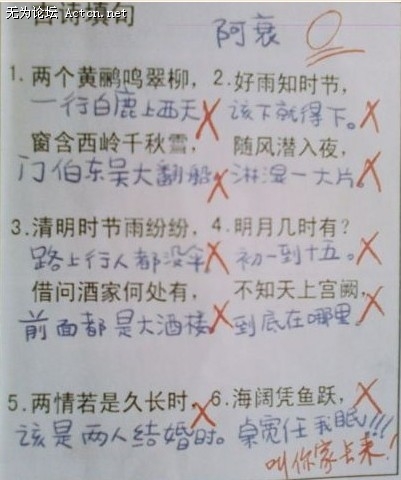 无为论坛 Actcn.net
古诗填句
阿衰
0
1. 两个黄鹂鸣翠柳，
一行白鹿上西天
窗含西岭千秋雪，
门伯东吴大翻船
2. 好雨知时节，
该下就得下。
随风潜入夜，
淋湿一大片。
3. 清明时节雨纷纷，
路上行人都没伞
借问酒家何处有，
前面都是大酒楼
4. 明月几时有？
初一到十五。
不知天上宫阙，
到底在哪里
5. 两情若是久长时，
该是两人结婚时。
6. 海阔凭鱼跃，
桌宽任我眠!!!
叫你家长来！